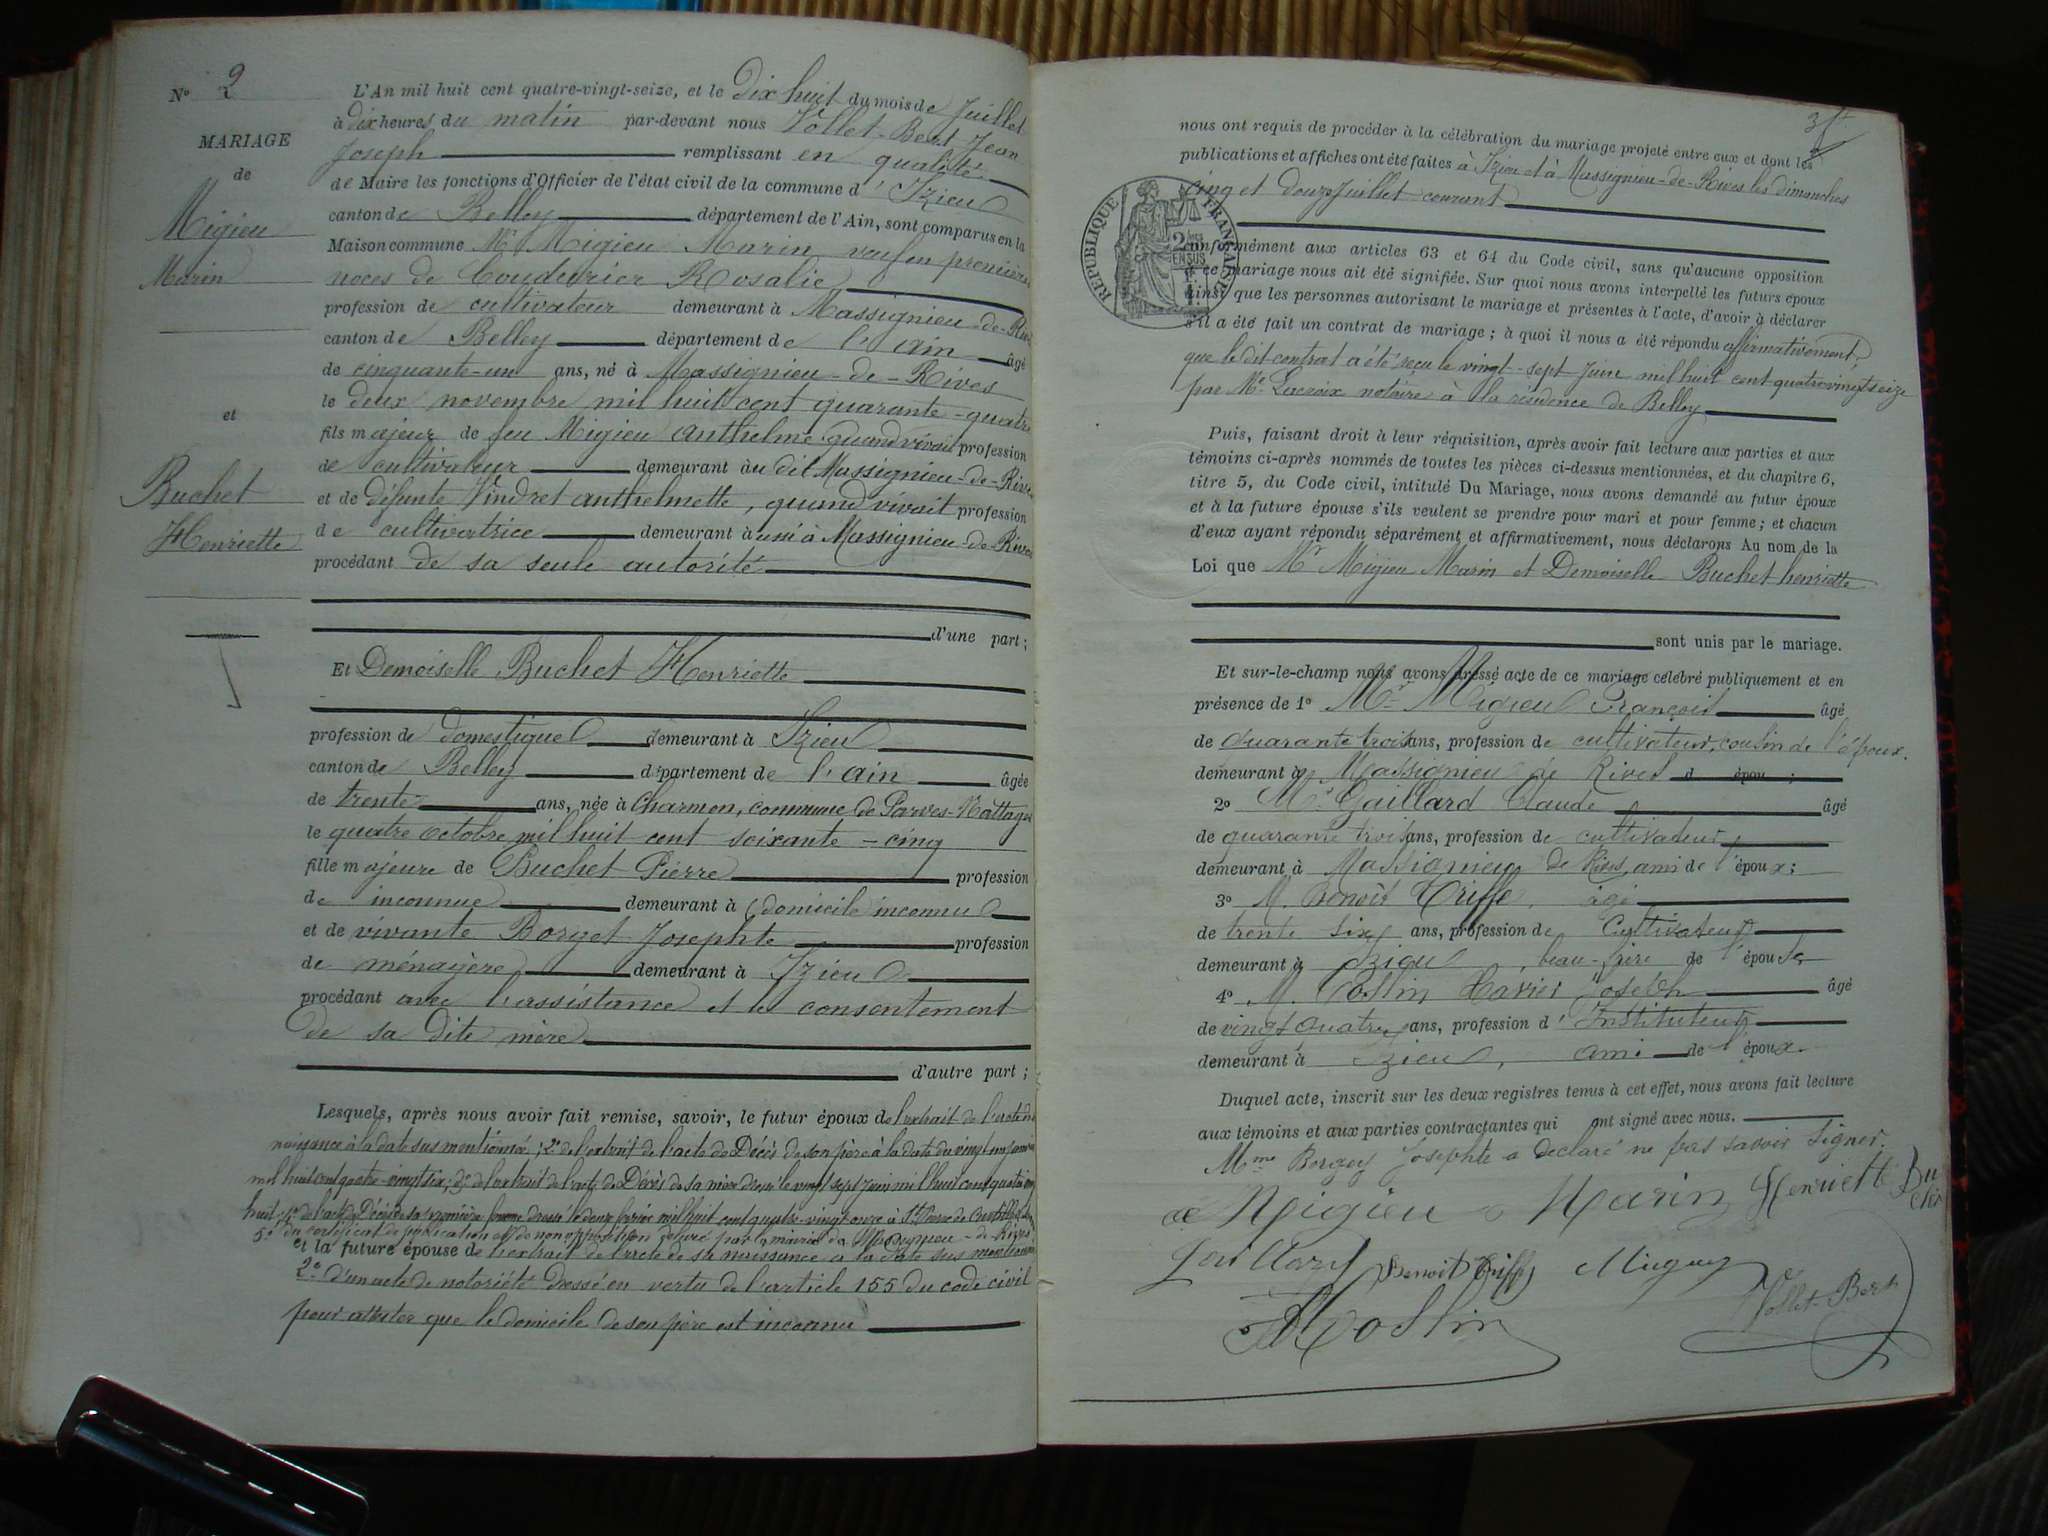 N° 2
MARIAGE
de
Migieu
Marin
et
Buchet
Henriette
L'An mil huit cent quatre-vingt-seize, et le dix huit du mois de Juillet
à dix heures du matin par-devant nous Vollet-Bert Jean
Joseph remplissant en qualité
de Maire les fonctions d'Officier de l'état civil de la commune d'Izieu
canton de Belley département de l'Ain, sont comparus en la
Maison commune Mr Migieu Marin veuf en premières
noces de Coudurier Rosalie
profession de cultivateur demeurant à Massignieu-de-Rives
canton de Belley département de l'ain âgé
de cinquante-un ans, né à Massignieu-de-Rives
le deux novembre mil huit cent quarante-quatre
fils majeur de feu Migieu anthelme quand vivait profession
de cultivateur demeurant au dit Massignieu-de-Rives
et de défunte Vindret anthelmette, quand vivait profession
de cultivatrice demeurant aussi à Massignieu-de-Rives
procédant de sa seule autorité
d'une part;
Et Demoiselle Buchet Henriette
profession de domestique demeurant à Izieu
canton de Belley département de l'ain âgée
de trente ans, née à Charmon, commune de Parves-Nattages
le quatre octobre mil huit cent soixante-cinq
fille majeure de Buchet Pierre profession
de inconnue demeurant à (domicile inconnu
et de vivante Borget Josephte profession
de ménagère demeurant à Izieu
procédant avec l'assistance et le consentement
de sa dite mère
d'autre part;
Lesquels, après nous avoir fait remise, savoir, le futur époux de l'extrait de l'acte de
naissance à la date sus mentionné; 2° de l'extrait de l'acte de Décès de son père à la date du vingt un
mil huit cent quatre-vingt six; 3° de l'extrait de l'acte de Décès de sa mère dressé le vingt sept Juin mil huit cent quatre vingt
huit 4° de l'acte de Décès de sa première femme dressé le deux mil huit cent quatre-vingt onze à St
5° du certificat de publication et de non opposition délivré par la mairie de Massignieu-de-Rives
et la future épouse de l'extrait de l'acte de sa naissance à la date sus mentionné
2° d'un acte de notoriété dressé en vertu de l'article 155 du code civil
pour attester que le domicile de son père est inconnu
nous ont requis de procéder à la célébration du mariage projeté entre eux et dont les
publications et affiches ont été faites à Izieu et à Massignieu-de-Rives les dimanches
cinq et douze Juillet courant
RÉPUBLIQUE FRANÇAISE
conformément aux articles 63 et 64 du Code civil, sans qu'aucune opposition
à ce mariage nous ait été signifiée. Sur quoi nous avons interpellé les futurs époux
ainsi que les personnes autorisant le mariage et présentes à l'acte, d'avoir à déclarer
s'il a été fait un contrat de mariage; à quoi il nous a été répondu affirmativement,
que le dit contrat a été reçu le vingt-sept Juin mil huit cent quatre vingt seize
par Me Lacroix notaire à la résidence de Belley
Puis, faisant droit à leur réquisition, après avoir fait lecture aux parties et aux
témoins ci-après nommés de toutes les pièces ci-dessus mentionnées, et du chapitre 6,
titre 5, du Code civil, intitulé Du Mariage, nous avons demandé au futur époux
et à la future épouse s'ils veulent se prendre pour mari et pour femme; et chacun
d'eux ayant répondu séparément et affirmativement, nous déclarons Au nom de la
Loi que Mr Migieu Marin et Demoiselle Buchet henriette
sont unis par le mariage.
Et sur-le-champ nous avons dressé acte de ce mariage célébré publiquement et en
présence de 1° Mr Migieu François âgé
de quarante trois ans, profession de cultivateur, cousin de l'époux.
demeurant à Massignieu de Rives d épou ;
2° Mr Gaillard Claude âgé
de quarante trois ans, profession de cultivateur
demeurant à Massignieu de Rives, ami de l'époux;
3° M. Benoît Triffe, âgé
de trente six ans, profession de Cultivateur
demeurant à Izieu, beau-frère de l'épouse
4° M. Xavier Joseph âgé
de vingt quatre ans, profession d'Instituteur
demeurant à Izieu, ami de l'époux.
Duquel acte, inscrit sur les deux registres tenus à cet effet, nous avons fait lecture
aux témoins et aux parties contractantes qui ont signé avec nous.
Mme Borget Josephte a déclaré ne pas savoir signer.
Migieu Marin Henriette Bu
chet
Gaillard Benoit Triffe Migieu
Vollet-Bert